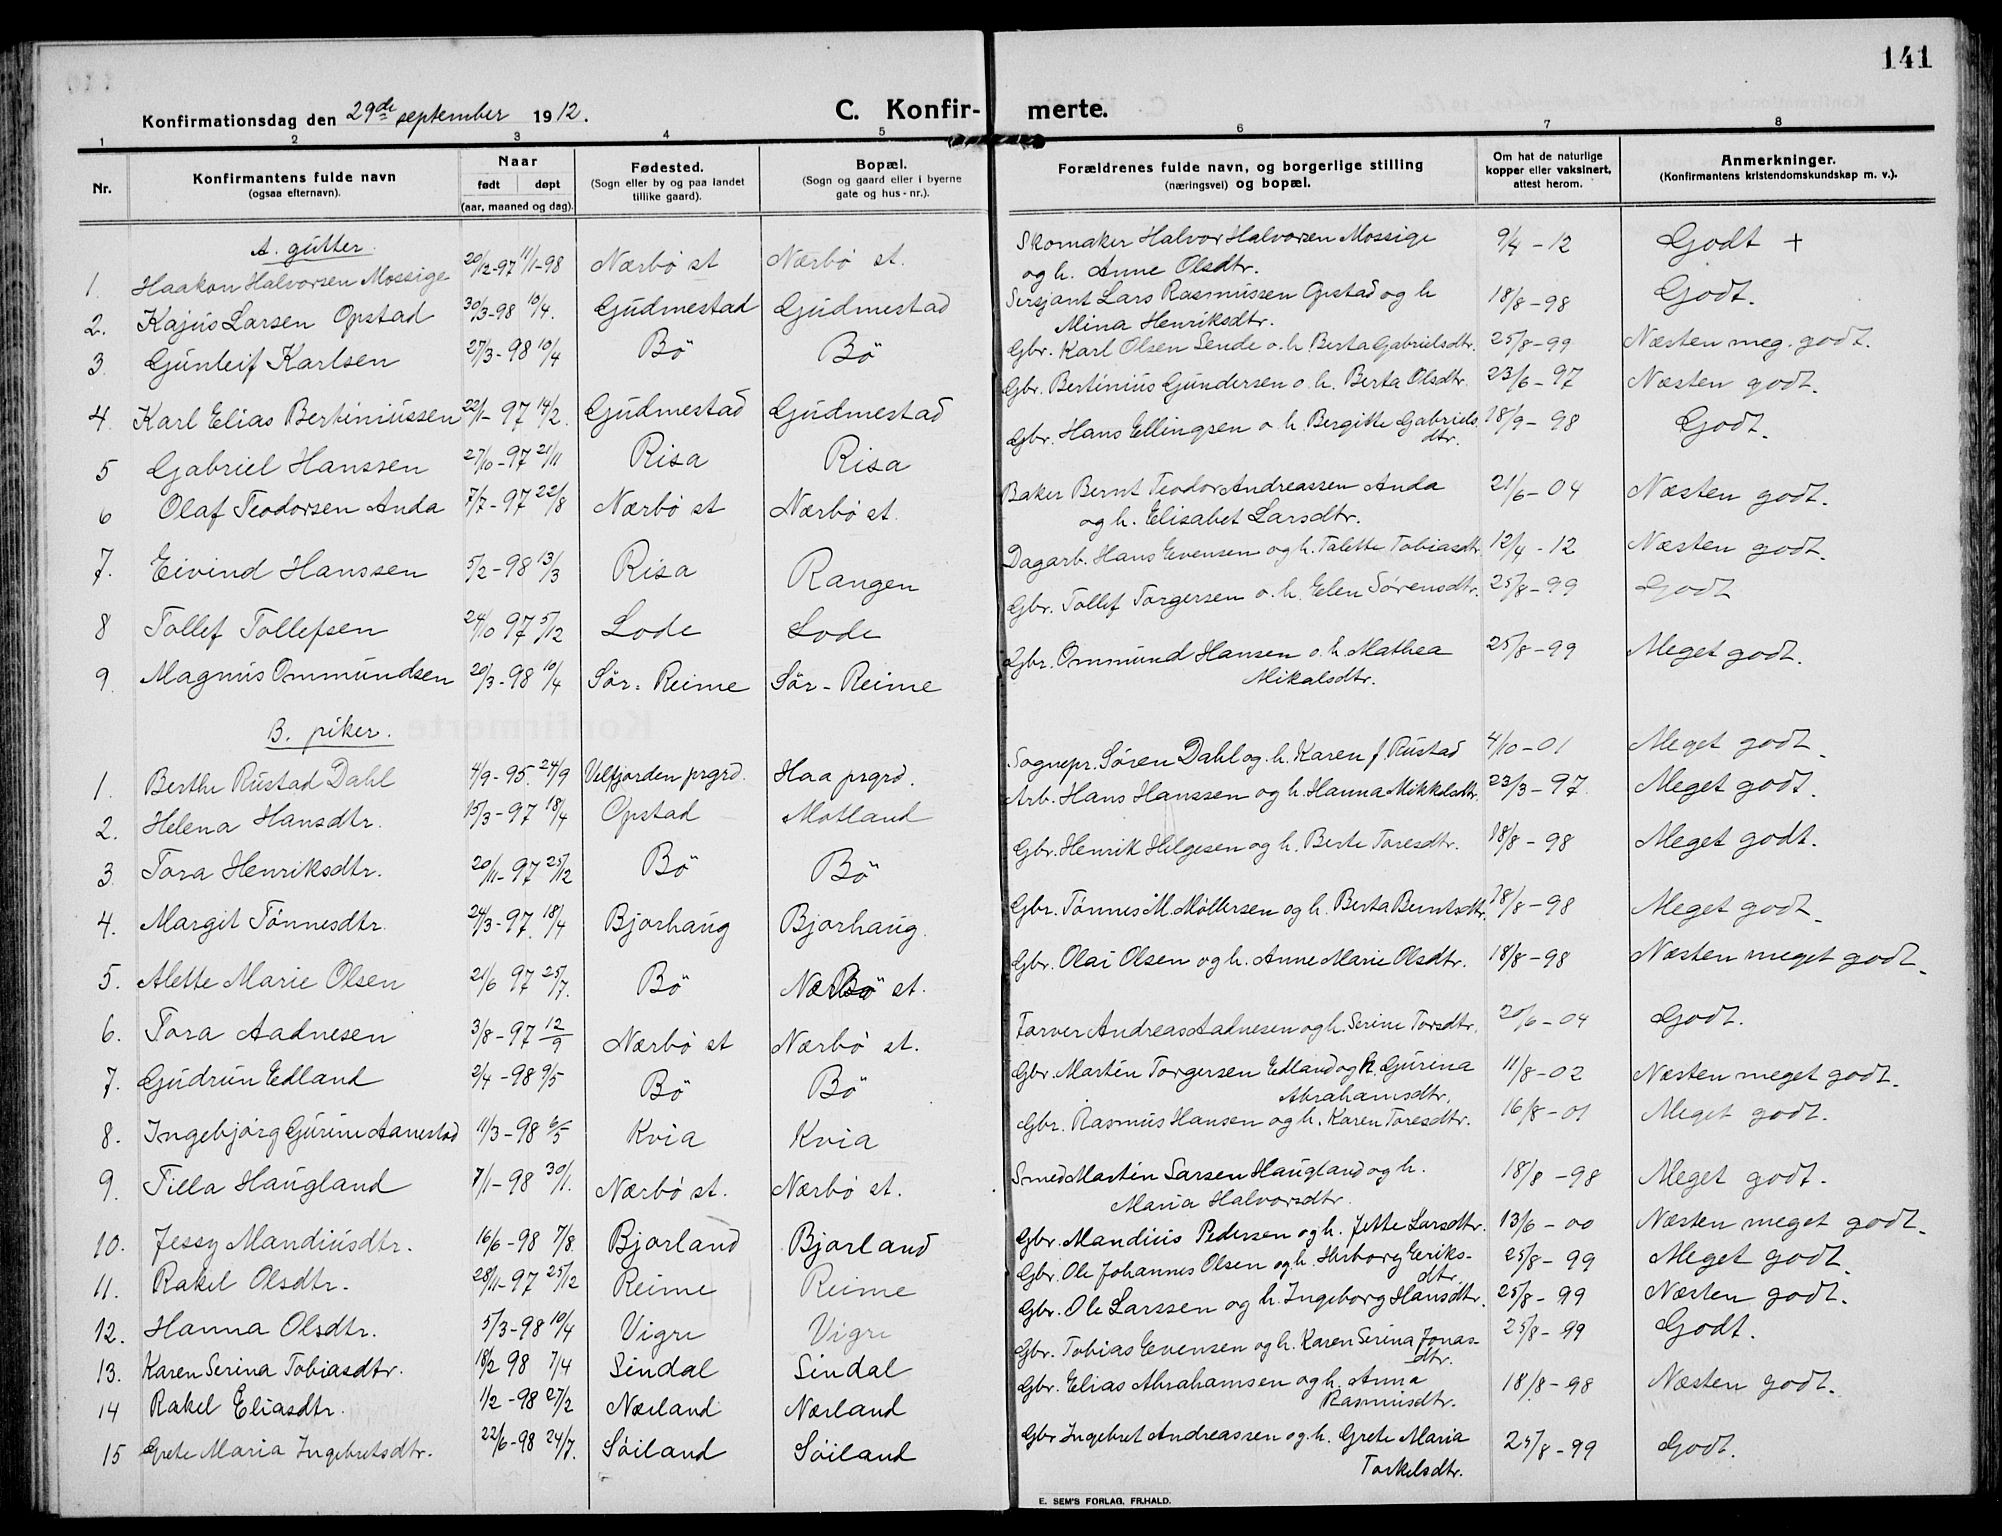 141
Konfirmationsdag den 29de september 1912.
C. Konfir- merte.
1 2 3 4 5 6 7 8
Nr. Konfirmantens fulde navn (ogsaa efternavn). Naar født døpt (aar, maaned og dag). Fødested. (Sogn eller by og paa landet tillike gaard). Bopæl. (Sogn og gaard eller i byerne gate og hus-nr.). Forældrenes fulde navn, og borgerlige stilling (næringsvei) og bopæl. Om hat de naturlige kopper eller vaksinert, attest herom. Anmerkninger. (Konfirmantens kristendomskundskap m. v.).
A. gutter.
1. Haakon Halvorsen Mossige 20/12-97 11/1-98 Nærbö st Nærbö st. Skomaker Halvor Halvorsen Mossige og h. Anne Olsdtr. 9/4-12 Godt +
2. Kajus Larsen Opstad 30/3-98 10/4. Gudmestad Gudmestad Sersjant Lars Rasmussen Opstad og h Mina Henriksdtr. 18/8-98 Godt.
3. Gunleif Karlsen 27/3-98 10/4 Bö Bö Gbr. Karl Olsen Sende o. h. Berta Gabrielsdtr. 25/8-99 Næsten meg. godt.
4. Karl Elias Bertiniussen 22/1-97 14/2. Gudmestad Gudmestad Gbr. Bertinius Gundersen o. h. Berta Olsdtr. 23/6-97 Næsten godt.
5 Gabriel Hanssen 27/10-97 21/11 Risa Risa Gbr. Hans Ellingsen o. h. Bergitte Gabrielsdtr. 18/9-98 Godt.
6 Olaf Teodorsen Anda 7/7-97 22/8 Nærbö st Nærbö st. Baker Bernt Teodor Andreassen Anda og h. Elisabet Larsdtr. 21/6-04 Næsten godt.
7. Eivind Hanssen 5/2-98 13/3 Risa Rangen Dagarb. Hans Evensen og h. Talette Tobiasdtr. 12/4-12 Næsten godt.
8 Tollef Tollefsen 24/10 97 5/12 Lode Lode Gbr. Tollef Torgersen o. h. Elen Sørensdtr. 25/8-99 Godt
9. Magnus Ommundsen 20/3-98 10/4 Sör-Reime Sör-Reime Gbr. Ommund Hansen o. h. Mathea Mikalsdtr. 25/8-99 Meget godt.
B. piker.
1. Berthe Rustad Dahl 4/9-95. 24/9 Velfjorden prgrd. Haa prgrd. Sognepr. Sören Dahl og h. Karen f. Rustad 4/10-01 Meget godt.
2. Helena Hansdtr. 15/3-97 18/4 Opstad Motland Arb. Hans Hanssen og h. Hanna Mikkelsdtr. 23/3-97. Meget godt.
3. Tora Henriksdtr. 20/11-97 25/12 Bö Bö Gbr. Henrik Helgesen og h. Berte Toresdtr. 18/8-98 Meget godt.
4. Margit Tönnesdtr. 24/3-97. 18/4 Bjorhaug Bjorhaug. Gbr. Tönnes M. Møllersen og h. Berta Berntsdtr. 18/8-98 Meget godt.
5. Alette Marie Olsen 21/6 97 25/7. Bö Nærbö st. Gbr. Olai Olsen og h. Anne Marie Olsdtr. 18/8-98 Næsten meget godt.
6. Tora Aadnesen 3/8-97 12/9 Nærbö st Nærbö st. Farver Andreas Aadnesen og h. Serine Torsdtr. 20/6-04 Godt.
7. Gudrun Edland 2/4-98 9/5 Bö Bö Gbr. Martin Torgersen Edland og h. Gurina Abrahamsdtr. 11/8-02 Næsten meget godt.
8. Ingebjörg Gurine Aanestad 11/3-98 6/5 Kvia Kvia Gbr. Rasmus Hansen og h. Karen Toresdtr. 16/8-01 Meget godt.
9. Tilla Haugland 7/1-98 30/1. Nærbö st. Nærbö st. Smed Martin Larsen Haugland og h. Maria Halvorsdtr. 18/8-98 Meget godt.
10. Jessy Mandiusdtr. 16/6-98 7/8. Bjorland Bjorland Gbr. Mandius Pedersen og h. Jette Larsdtr. 13/6-00 Næsten meget godt.
11. Rakel Olsdtr. 28/11-97 25/12 Reime Reime Gbr. Ole Johannes Olsen og h. Herborg Eriksdtr. 25/8-99 Meget godt.
12. Hanna Olsdtr. 5/3-98 10/4 Vigre Vigre Gbr. Ole Larssen og h. Ingeborg Hansdtr. 25/8-99 Næsten godt.
13. Karen Serina Tobiasdtr. 18/2 98 7/4 Sindal Sindal Gbr. Tobias Evensen og h. Karen Serina Jonasdtr. 25/8-99 Godt.
14 Rakel Eliasdtr. 1/2-98 27/2 Nærland Nærland Gbr. Elias Abrahamsen og h. Anna Rasmusdtr. 18/8-98 Næsten godt.
15 Grete Maria Ingebretsdtr. 22/6-98 24/7. Söiland Söiland Gbr Ingebret Andreassen og h. Grete Maria Torkelsdtr. 25/8-99 Godt.
E. SEM'S FORLAG, FR.HALD.